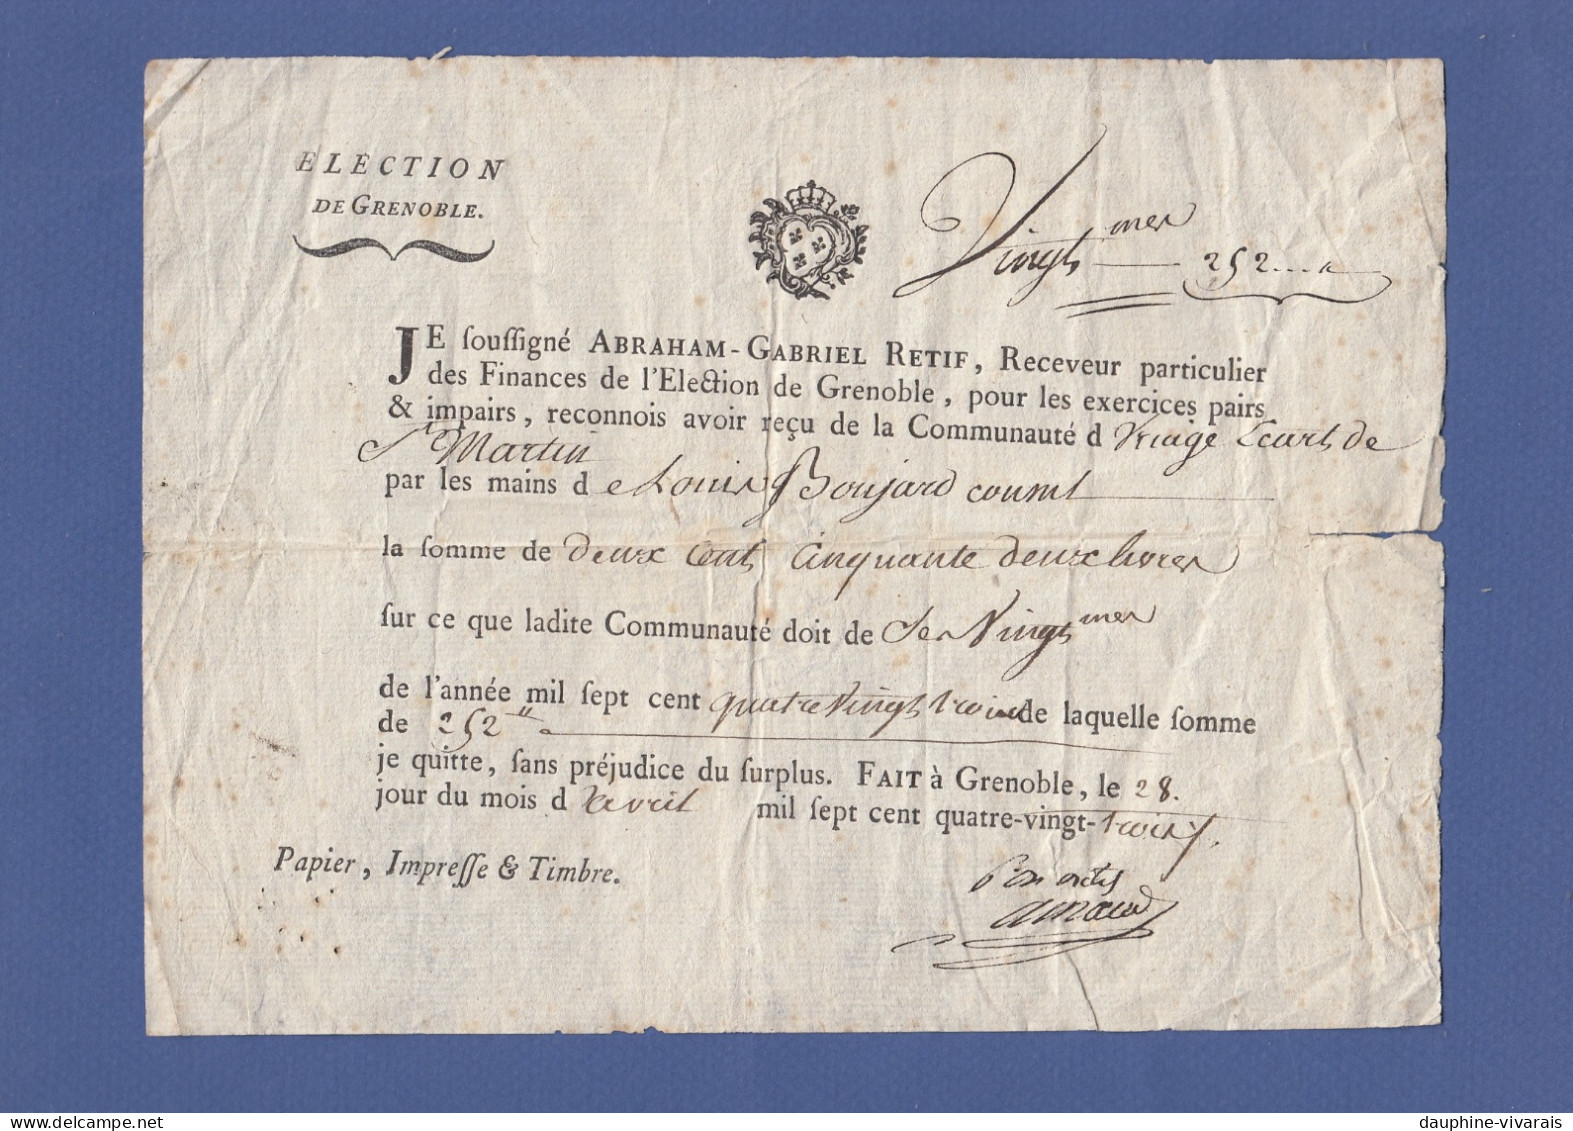 ELECTION
DE GRENOBLE.
Vingt mes 252
JE souſſigné ABRAHAM-GABRIEL RETIF, Receveur particulier
des Finances de l'Election de Grenoble, pour les exercices pairs
& impairs, reconnois avoir reçu de la Communauté d Uriage Ecart de
St Martin
par les mains d e Louis Boujard consul
la ſomme de deux cent cinquante deux livres
ſur ce que ladite Communauté doit de Ses Vingt mes
de l'année mil ſept cent quatre Vingt trois de laquelle ſomme
de 252 ll
je quitte, ſans préjudice du ſurplus. FAIT à Grenoble, le 28.
jour du mois d avril mil ſept cent quatre-vingt-trois
Papier, Impreſſe & Timbre.
arnaud
dauphine-vivarais